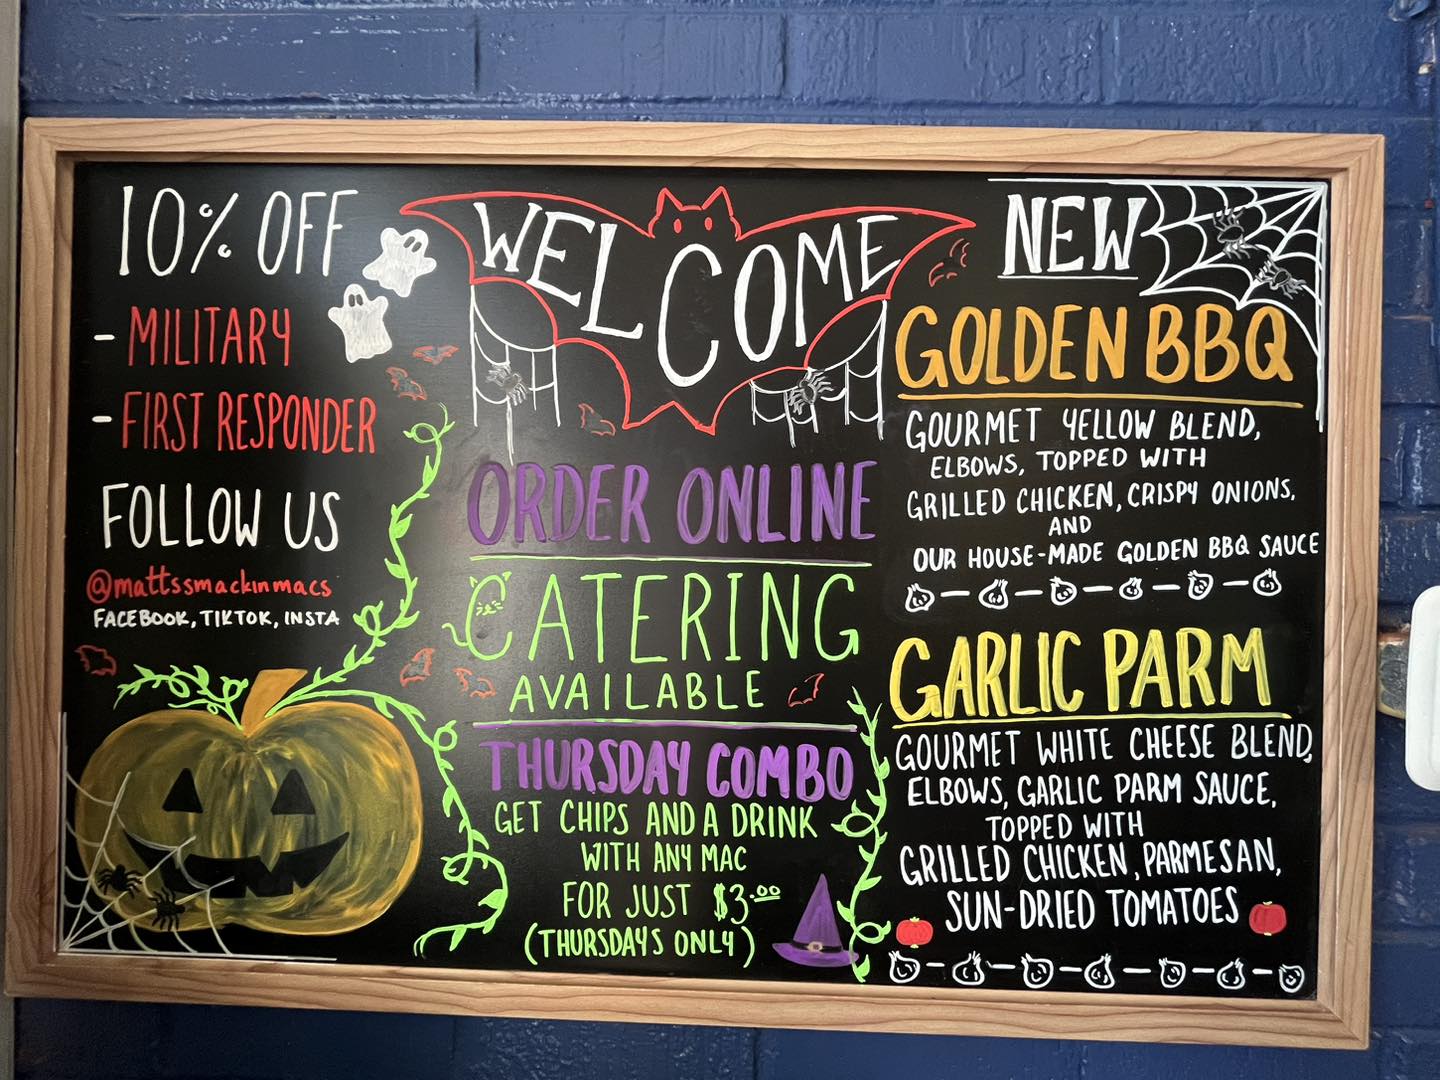 10% OFF
- MILITARY
- FIRST RESPONDER
FOLLOW US
@mattssmackinmacs
FACEBOOK, TIKTOK, INSTA
WELCOME
ORDER ONLINE
CATERING
AVAILABLE
THURSDAY COMBO
GET CHIPS AND A DRINK
WITH ANY MAC
FOR JUST $3.00
(THURSDAYS ONLY)
NEW
GOLDEN BBQ
GOURMET YELLOW BLEND,
ELBOWS, TOPPED WITH
GRILLED CHICKEN, CRISPY ONIONS,
AND
OUR HOUSE-MADE GOLDEN BBQ SAUCE
GARLIC PARM
GOURMET WHITE CHEESE BLEND,
ELBOWS, GARLIC PARM SAUCE,
TOPPED WITH
GRILLED CHICKEN, PARMESAN,
SUN-DRIED TOMATOES